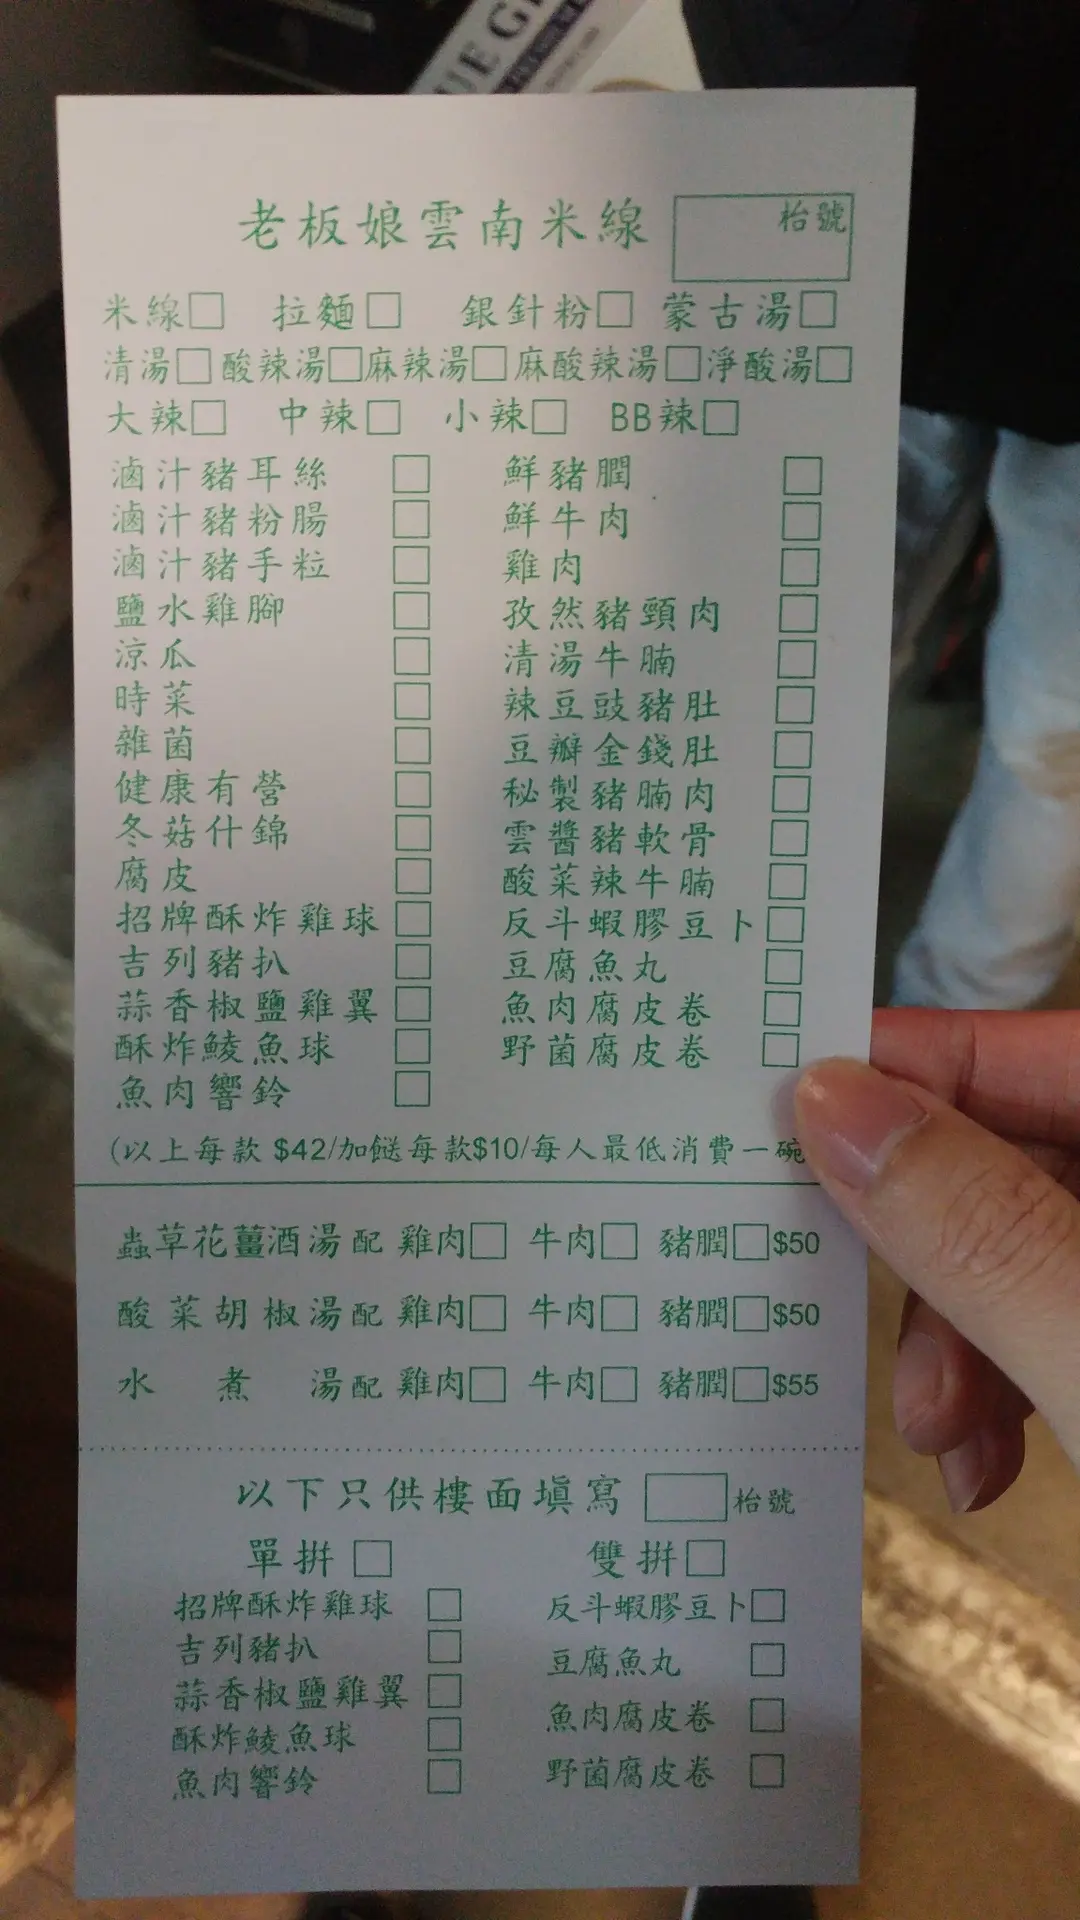 UE G
老板娘雲南米線 枱號
米線□ 拉麵□ 銀針粉□ 蒙古湯□
清湯□ 酸辣湯□ 麻辣湯□ 麻酸辣湯□ 淨酸湯□
大辣□ 中辣□ 小辣□ BB辣□
滷汁豬耳絲□ 鮮豬膶□
滷汁豬粉腸□ 鮮牛肉□
滷汁豬手粒□ 雞肉□
鹽水雞腳□ 孜然豬頸肉□
涼瓜□ 清湯牛腩□
時菜□ 辣豆豉豬肚□
雜菌□ 豆瓣金錢肚□
健康有營□ 秘製豬腩肉□
冬菇什錦□ 雲醬豬軟骨□
腐皮□ 酸菜辣牛腩□
招牌酥炸雞球□ 反斗蝦膠豆卜□
吉列豬扒□ 豆腐魚丸□
蒜香椒鹽雞翼□ 魚肉腐皮卷□
酥炸鯪魚球□ 野菌腐皮卷□
魚肉響鈴□
(以上每款 $42/加餸每款$10/每人最低消費一碗
蟲草花薑酒湯配 雞肉□ 牛肉□ 豬膶□$50
酸菜胡椒湯配 雞肉□ 牛肉□ 豬膶□$50
水煮湯配 雞肉□ 牛肉□ 豬膶□$55
以下只供樓面填寫 □枱號
單拼□ 雙拼□
招牌酥炸雞球□ 反斗蝦膠豆卜□
吉列豬扒□ 豆腐魚丸□
蒜香椒鹽雞翼□ 魚肉腐皮卷□
酥炸鯪魚球□ 野菌腐皮卷□
魚肉響鈴□